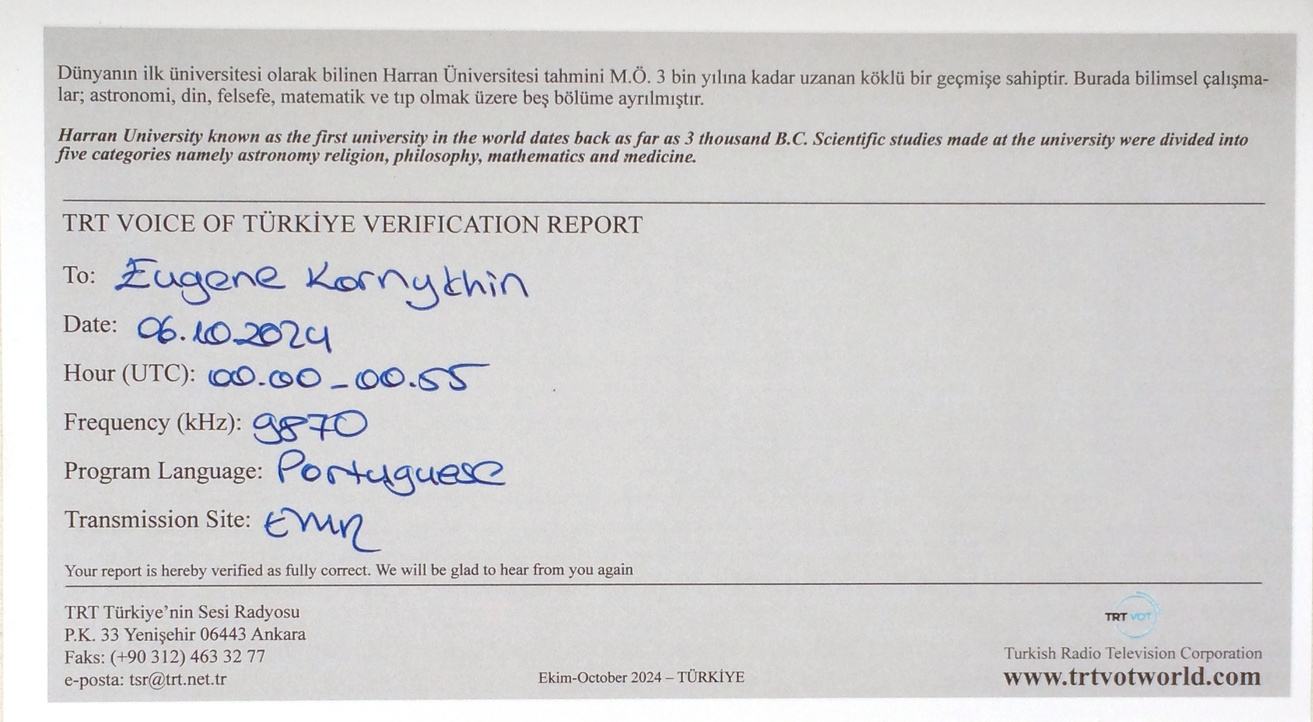 Dünyanın ilk üniversitesi olarak bilinen Harran Üniversitesi tahmini M.Ö. 3 bin yılına kadar uzanan köklü bir geçmişe sahiptir. Burada bilimsel çalışma-
lar; astronomi, din, felsefe, matematik ve tıp olmak üzere beş bölüme ayrılmıştır.
Harran University known as the first university in the world dates back as far as 3 thousand B.C. Scientific studies made at the university were divided into
five categories namely astronomy religion, philosophy, mathematics and medicine.
TRT VOICE OF TÜRKİYE VERIFICATION REPORT
To: Eugene Kornythin
Date: 06.10.2024
Hour (UTC): 00.00 - 00.55
Frequency (kHz): 9870
Program Language: Portuguese
Transmission Site: EMR
Your report is hereby verified as fully correct. We will be glad to hear from you again
TRT Türkiye'nin Sesi Radyosu
P.K. 33 Yenişehir 06443 Ankara
Faks: (+90 312) 463 32 77
e-posta: tsr@trt.net.tr
Ekim-October 2024 – TÜRKİYE
TRT VOT
Turkish Radio Television Corporation
www.trtvotworld.com